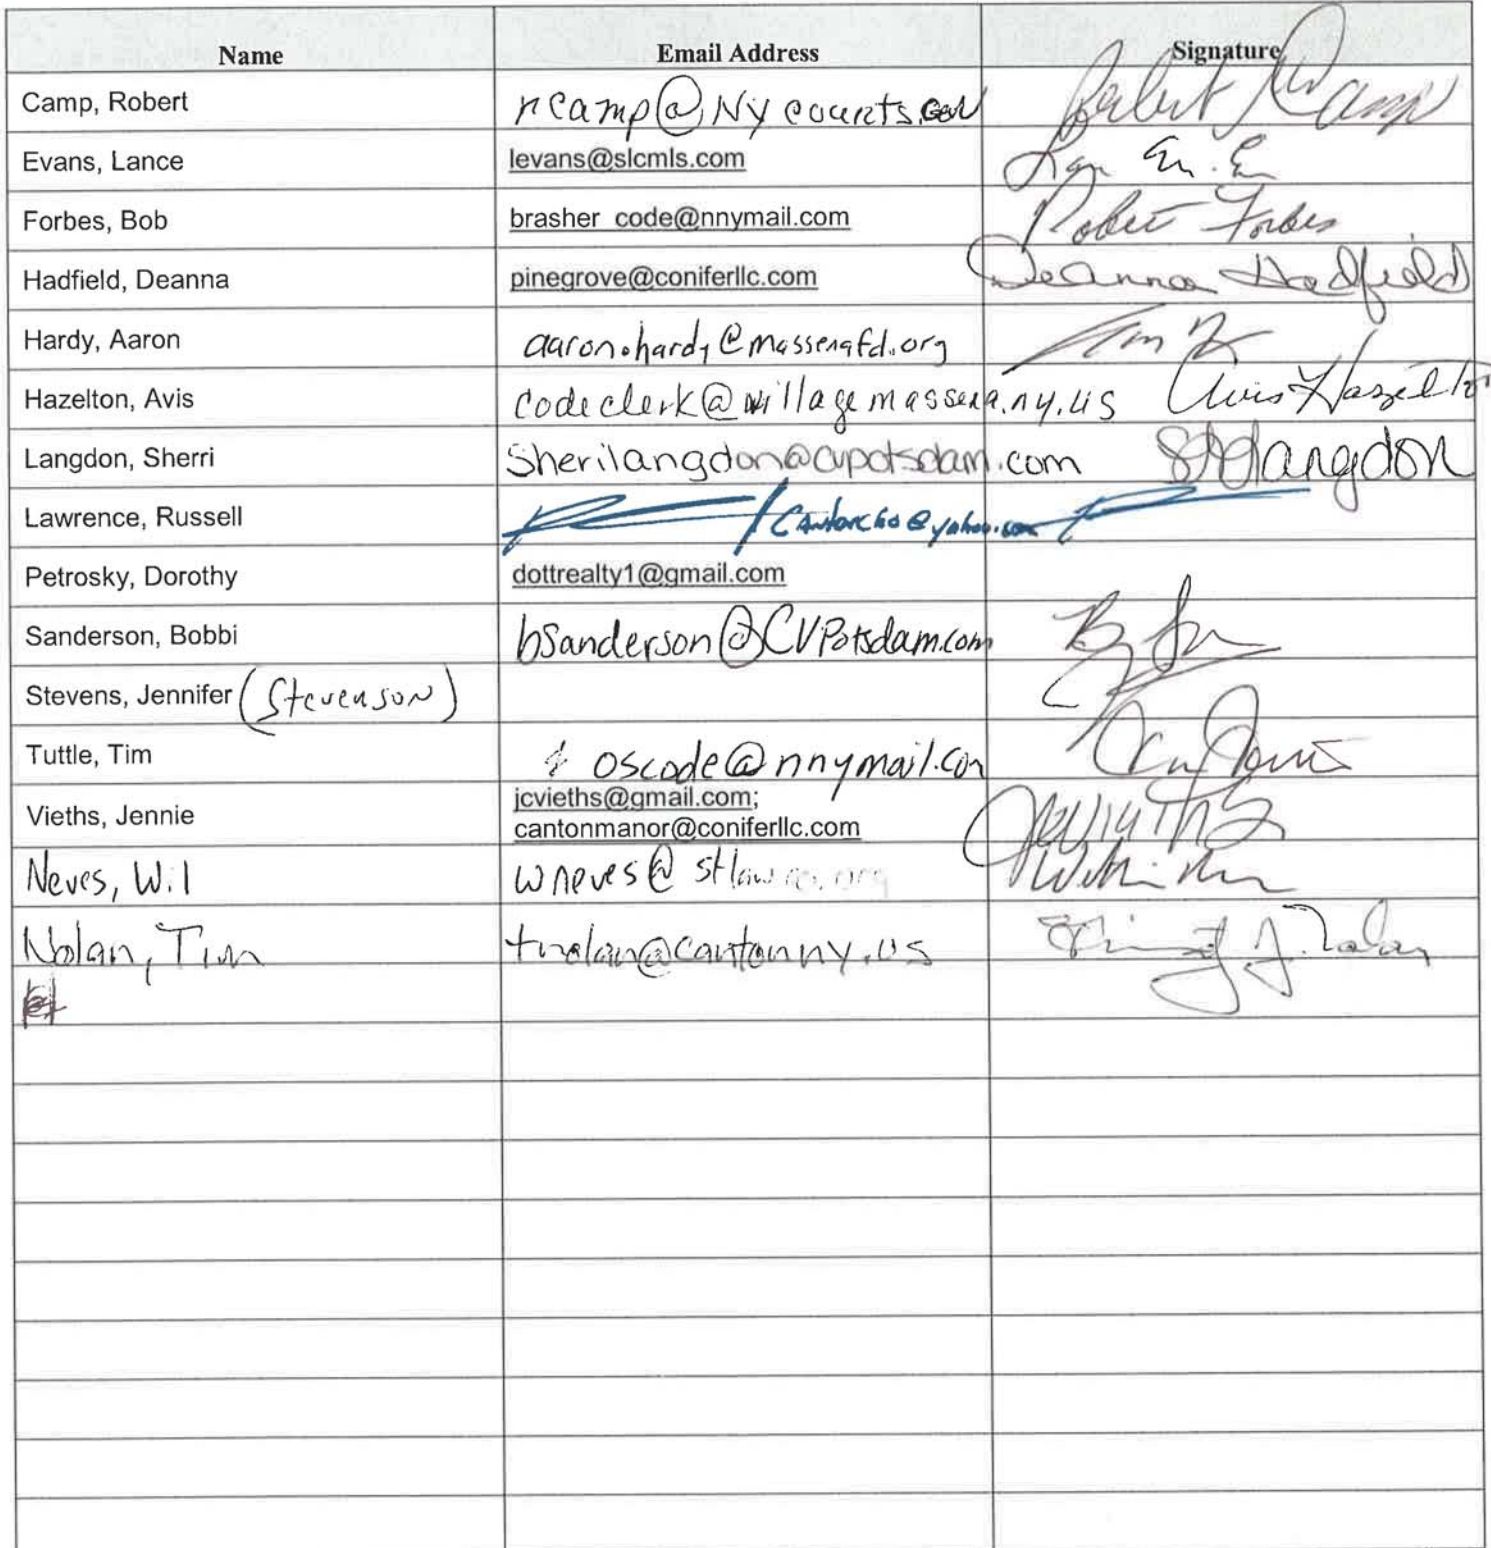 Name Email Address Signature
Camp, Robert rcamp@NYcourts.gov Robert Camp
Evans, Lance levans@slcmls.com
Forbes, Bob brasher_code@nnymail.com Robert Forbes
Hadfield, Deanna pinegrove@coniferllc.com Deanna Hadfield
Hardy, Aaron aaron.hardy@massenafd.org
Hazelton, Avis codeclerk@village.massena.ny.us Avis Hazelton
Langdon, Sherri Sherilangdon@cvpotsdam.com Langdon
Lawrence, Russell
Petrosky, Dorothy dottrealty1@gmail.com
Sanderson, Bobbi bSanderson@CVPotsdam.com
Stevens, Jennifer (Stevenson)
Tuttle, Tim oscode@nnymail.com
jcvieths@gmail.com;
Vieths, Jennie
cantonmanor@coniferllc.com
Neves, Wil
Nolan, Tim tnolan@cantonny.us Timothy J. Nolan